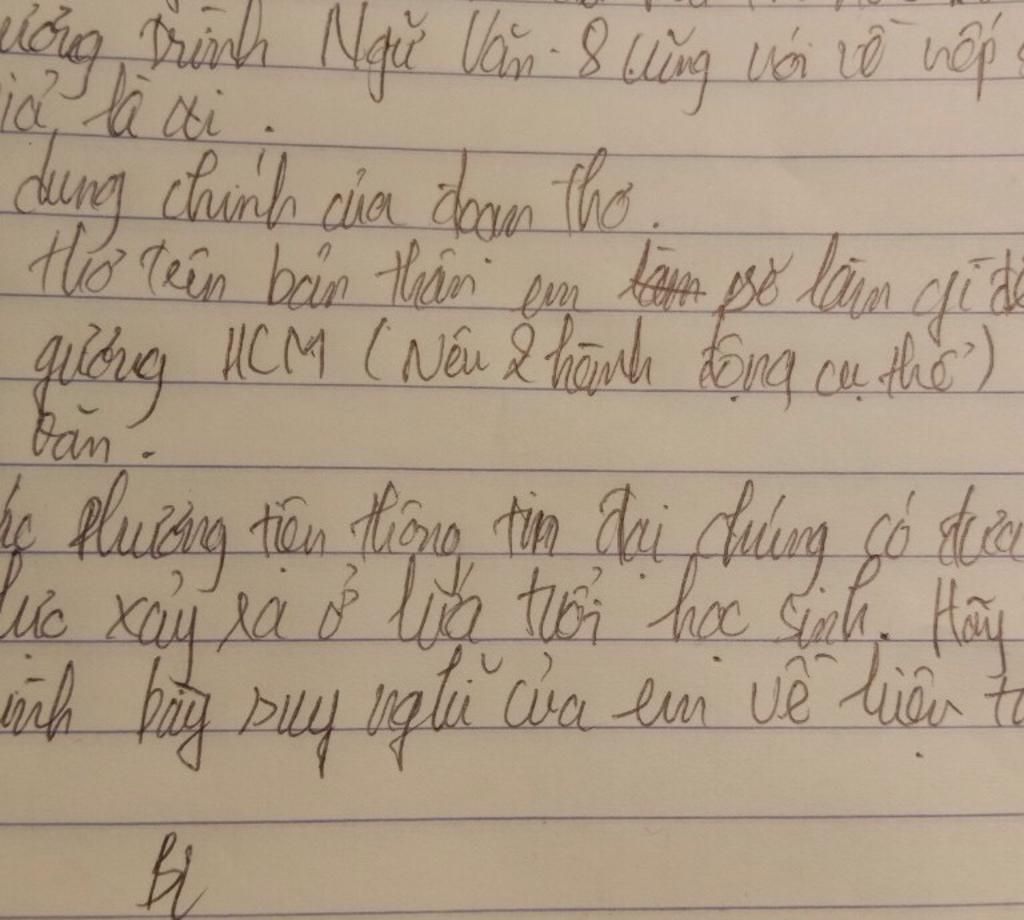 ương trình Ngữ Văn 8 cũng với vở nếp
iả là ai.
dung chính của đoạn thơ.
thơ trên bản thân em làm sẽ làm gì để
gương HCM (Nêu 2 hành động cụ thể)
văn.
phương tiện thông tin đại chúng có đưa
lực xảy ra ở lứa tuổi học sinh. Hãy
ình bày suy nghĩ của em về hiện t
BL